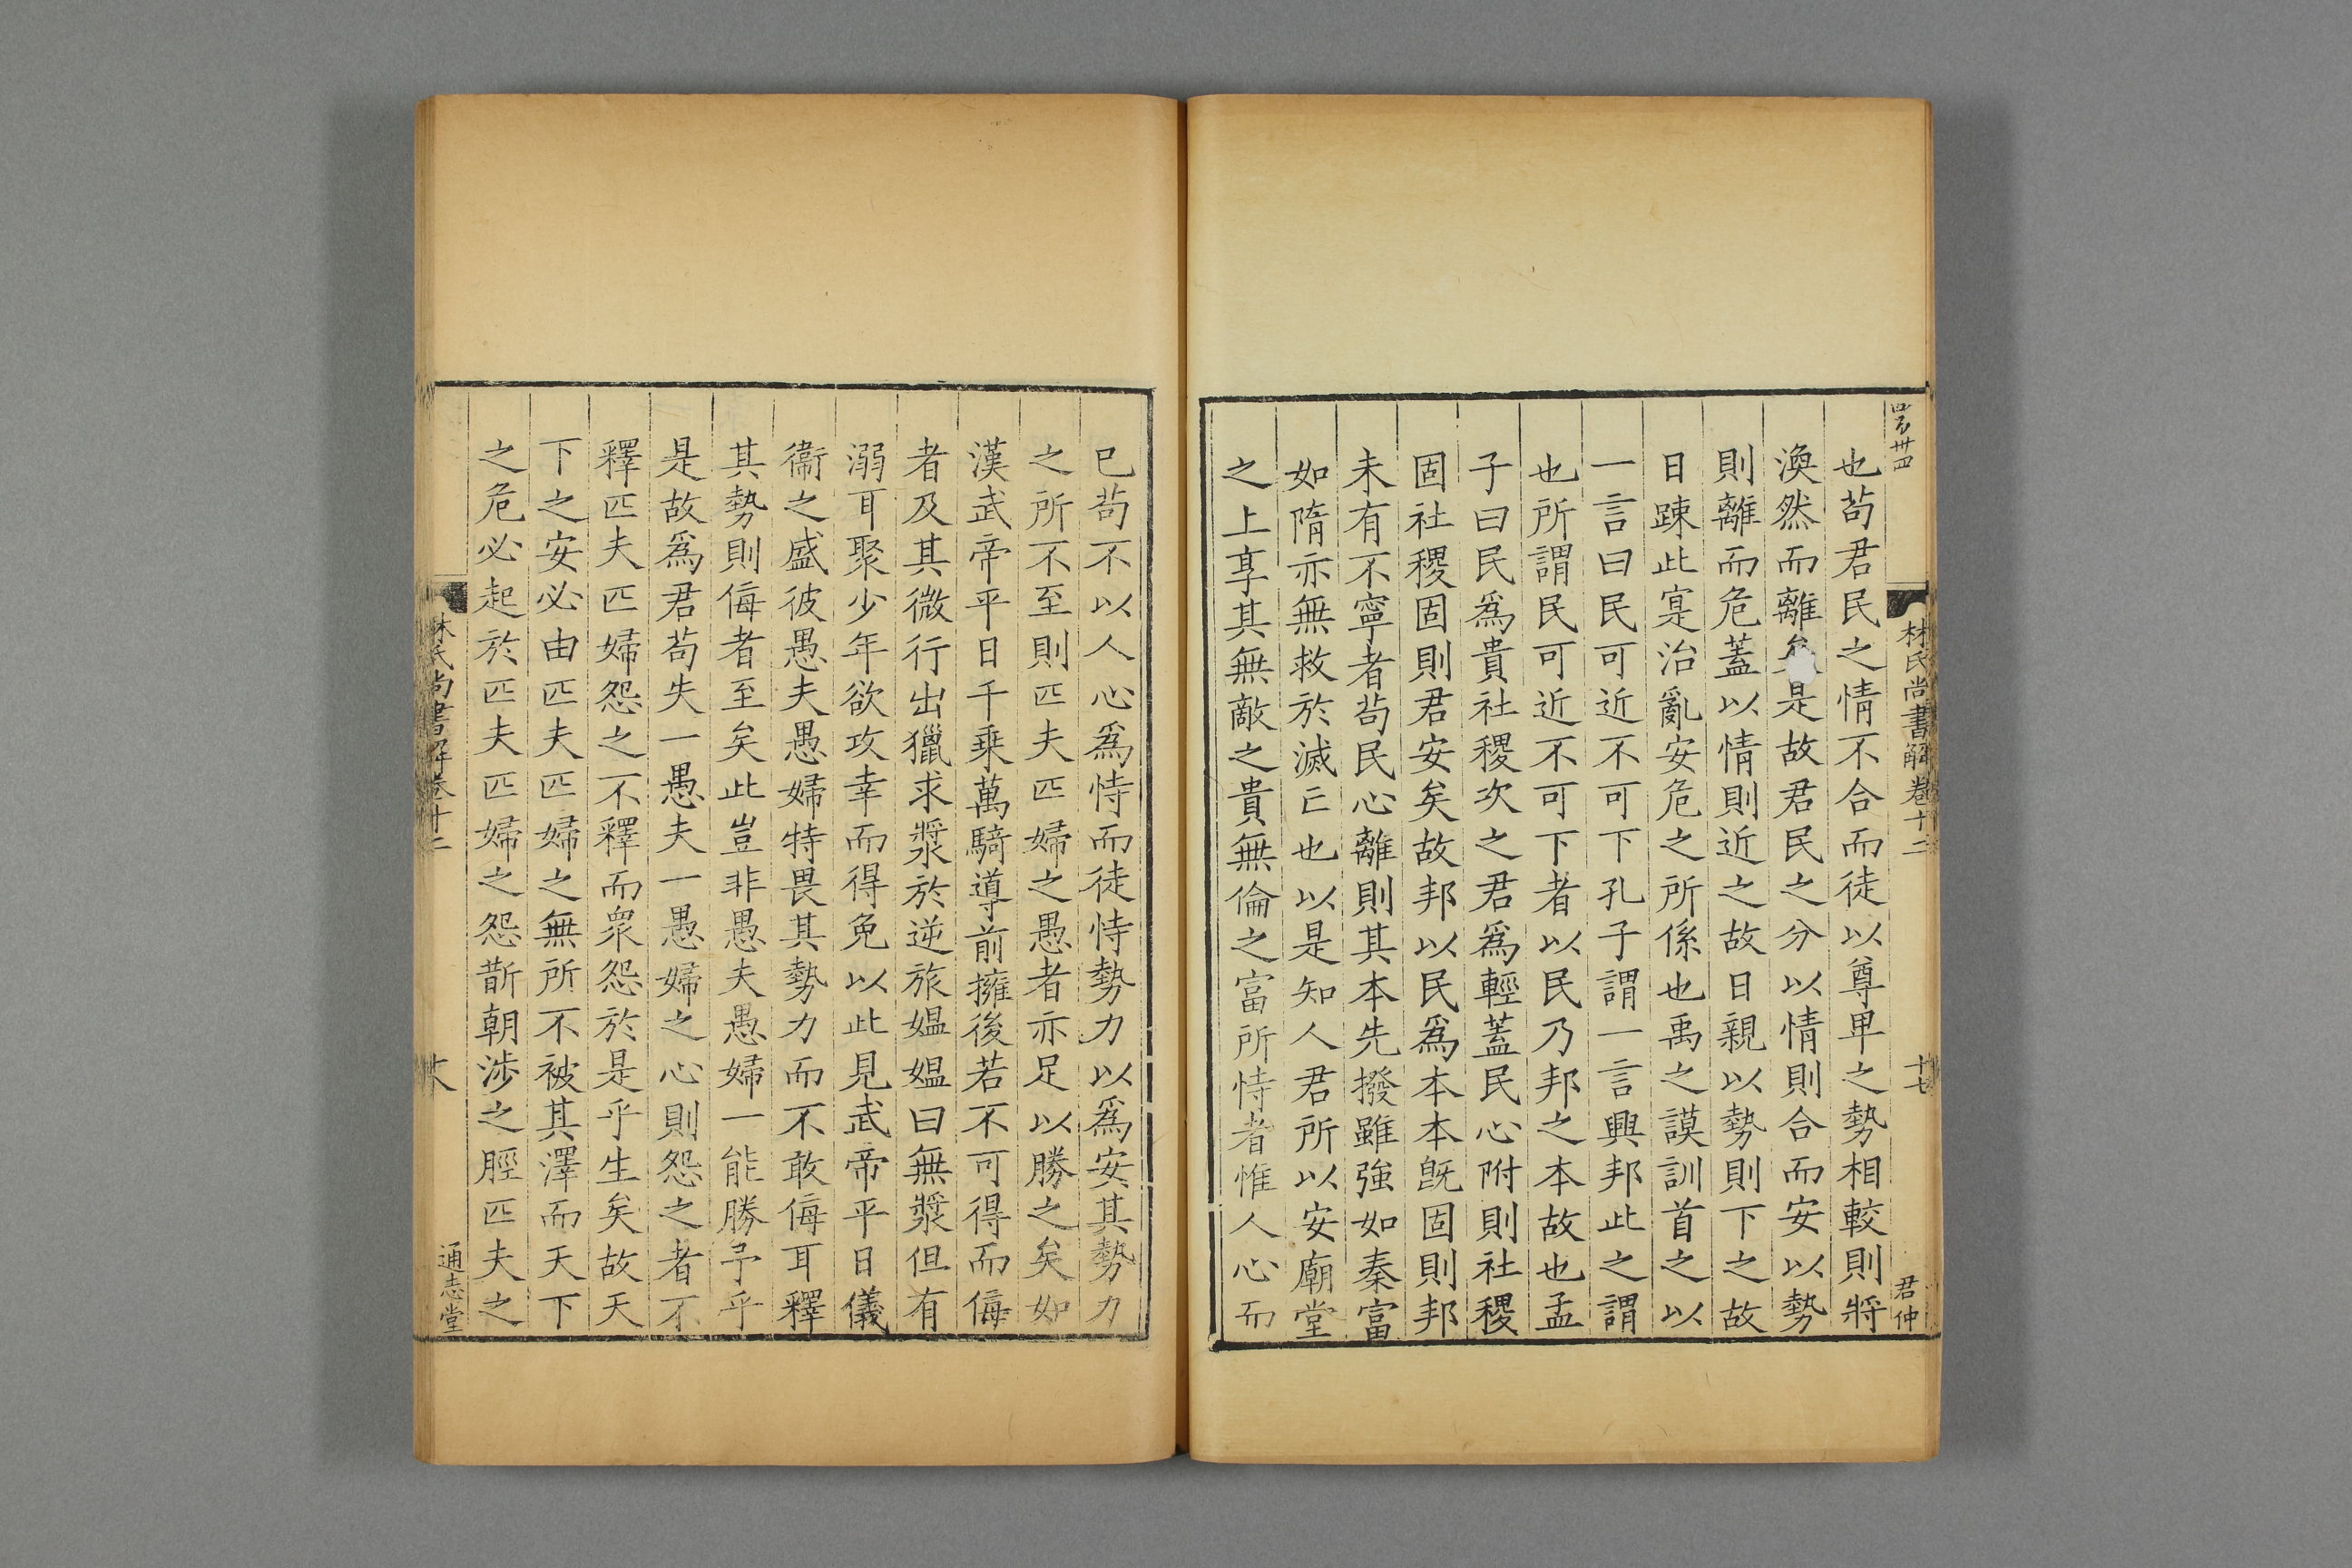 林氏尚書解卷十二 十七 君仲
也茍君民之情不合而徒以尊卑之勢相較則將
渙然而離是故君民之分以情則合而安以勢
則離而危蓋以情則近之故日親以勢則下之故
日踈此寔治亂安危之所係也禹之謨訓首之以
一言曰民可近不可下孔子謂一言興邦此之謂
也所謂民可近不可下者以民乃邦之本故也孟
子曰民爲貴社稷次之君爲輕蓋民心附則社稷
固社稷固則君安矣故邦以民爲本本旣固則邦
未有不寧者茍民心離則其本先撥雖強如秦富
如隋亦無救於滅亡也以是知人君所以安廟堂
之上享其無敵之貴無倫之富所恃者惟人心而
已茍不以人心爲恃而徒恃勢力以爲安其勢力
之所不至則匹夫匹婦之愚者亦足以勝之矣如
漢武帝平日千乘萬騎導前擁後若不可得而侮
者及其微行出獵求漿於逆旅媼媼曰無漿但有
溺耳聚少年欲攻幸而得免以此見武帝平日儀
衞之盛彼愚夫愚婦特畏其勢力而不敢侮耳釋
其勢則侮者至矣此豈非愚夫愚婦一能勝予乎
是故爲君茍失一愚夫一愚婦之心則怨之者不
釋匹夫匹婦怨之不釋而衆怨於是乎生矣故天
下之安必由匹夫匹婦之無所不被其澤而天下
之危必起於匹夫匹婦之怨斮朝涉之脛匹夫之
林氏尚書解卷十二 通志堂